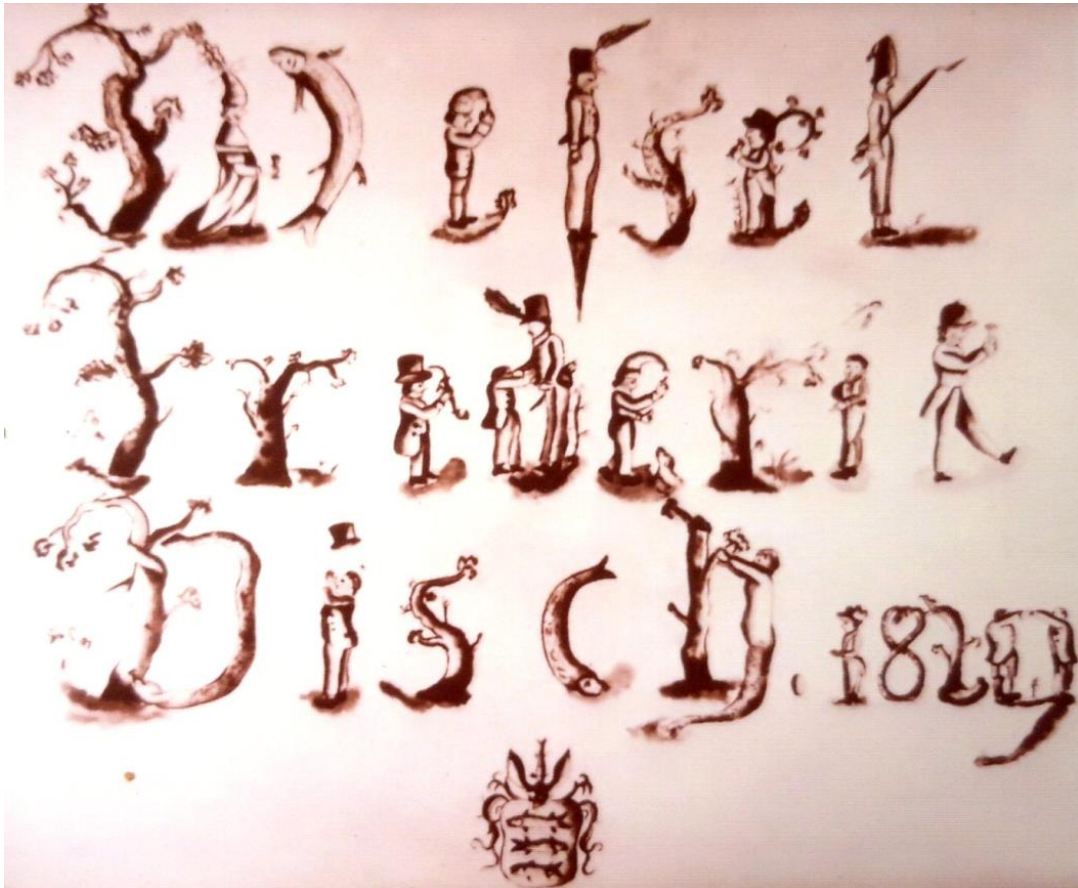 Weſsel
Frederik
Visch. 1829